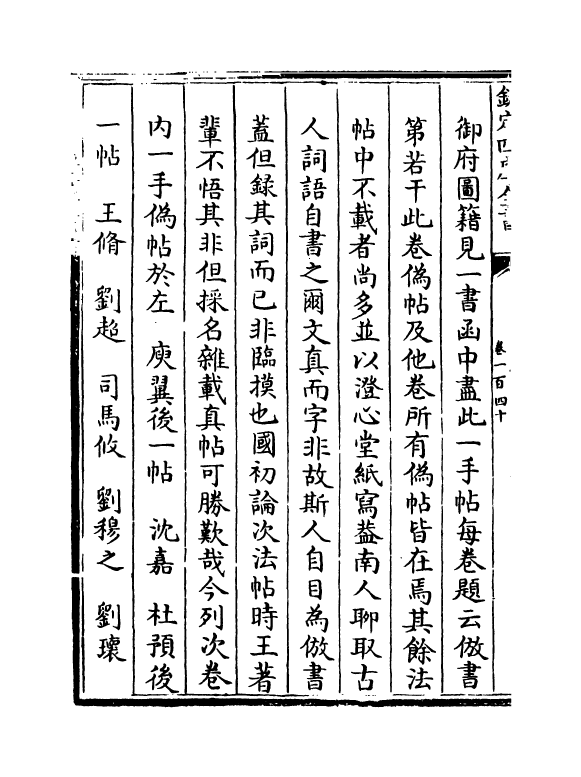 御府圖籍見一書函中盡此一手帖每卷題云倣書
第若干此卷偽帖及他卷所有偽帖皆在焉其餘法
帖中不載者尚多並以澄心堂紙寫葢南人聊取古
人詞語自書之爾文真而字非故斯人自目為倣書
蓋但録其詞而已非臨摸也國初論次法帖時王著
軰不悟其非但採名雜載真帖可勝歎哉今列次卷
内一手偽帖於左　庾翼後一帖　沈嘉　杜預後
一帖　王脩　劉超　司馬攸　劉穆之　劉瓌
卷一百四十